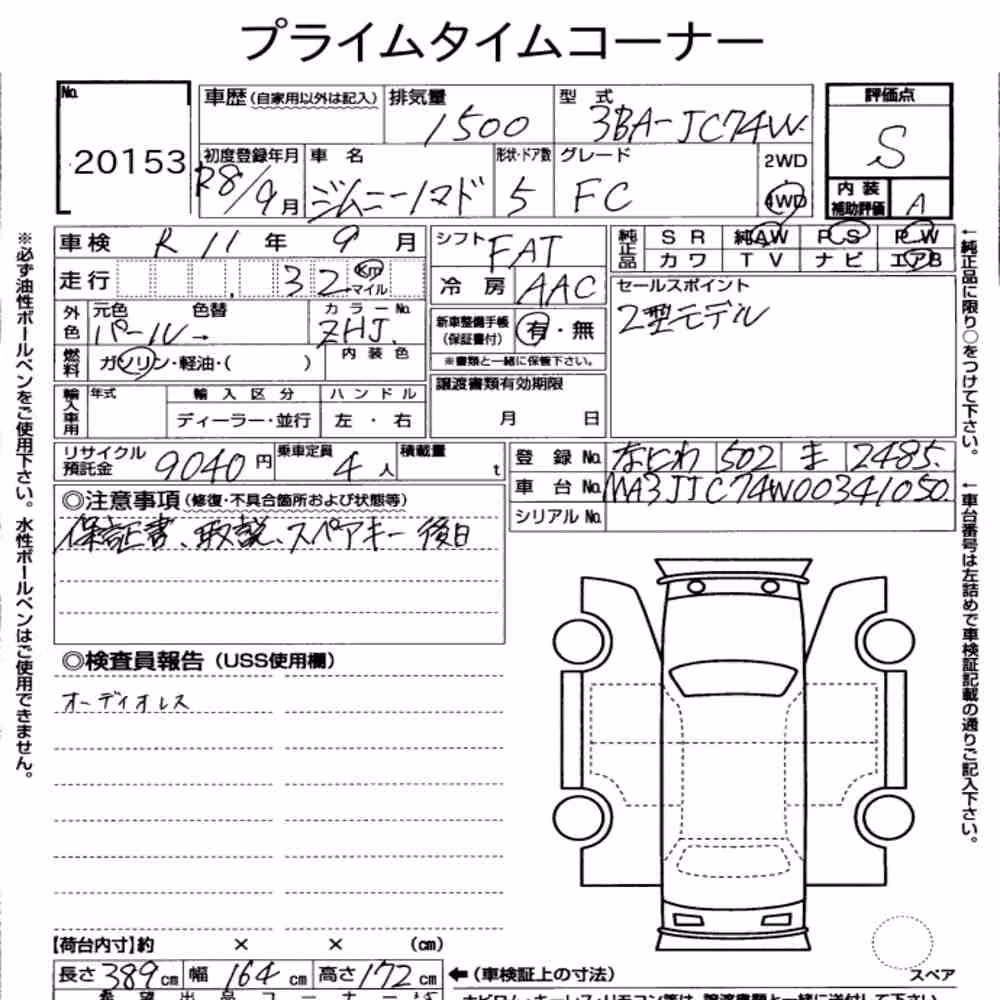 プライムタイムコーナー
No. 20153
車歴(自家用以外は記入) 排気量 1500 型式 3BA-JC74W
評価点 S
初度登録年月 R8/9月 車名 ジムニーノマド 形状・ドア数 5 グレード FC 2WD 4WD
内装補助評価 A
車検 R 11年 9月 シフト FAT 純正品 SR 純AW PS PW
カワ TV ナビ エアB
走行 32 Km マイル 冷房 AAC
セールスポイント
2型モデル
外色 元色 パール→ 色替 カラーNo. ZHJ
新車整備手帳(保証書付) 有・無
※書類と一緒に保管下さい。
燃料 ガソリン・軽油・( ) 内装色
譲渡書類有効期限
月 日
輸入車用 年式 輸入区分 ハンドル
ディーラー・並行 左・右
リサイクル預託金 9040円 乗車定員 4人 積載量 t
登録No. なにわ 502 ま 2485
車台No. MA3JJC74W00341050
シリアルNo.
◎注意事項(修復・不具合箇所および状態等)
保証書、取説、スペアキー後日
◎検査員報告(USS使用欄)
オーディオレス
【荷台内寸】約 × × (cm)
長さ389cm 幅164cm 高さ172cm
←(車検証上の寸法)
スペア
希望出品コーナー
※必ず油性ボールペンをご使用下さい。水性ボールペンはご使用できません。
←純正品に限り○をつけて下さい。
←車台番号は左詰めで車検証記載の通りご記入下さい。